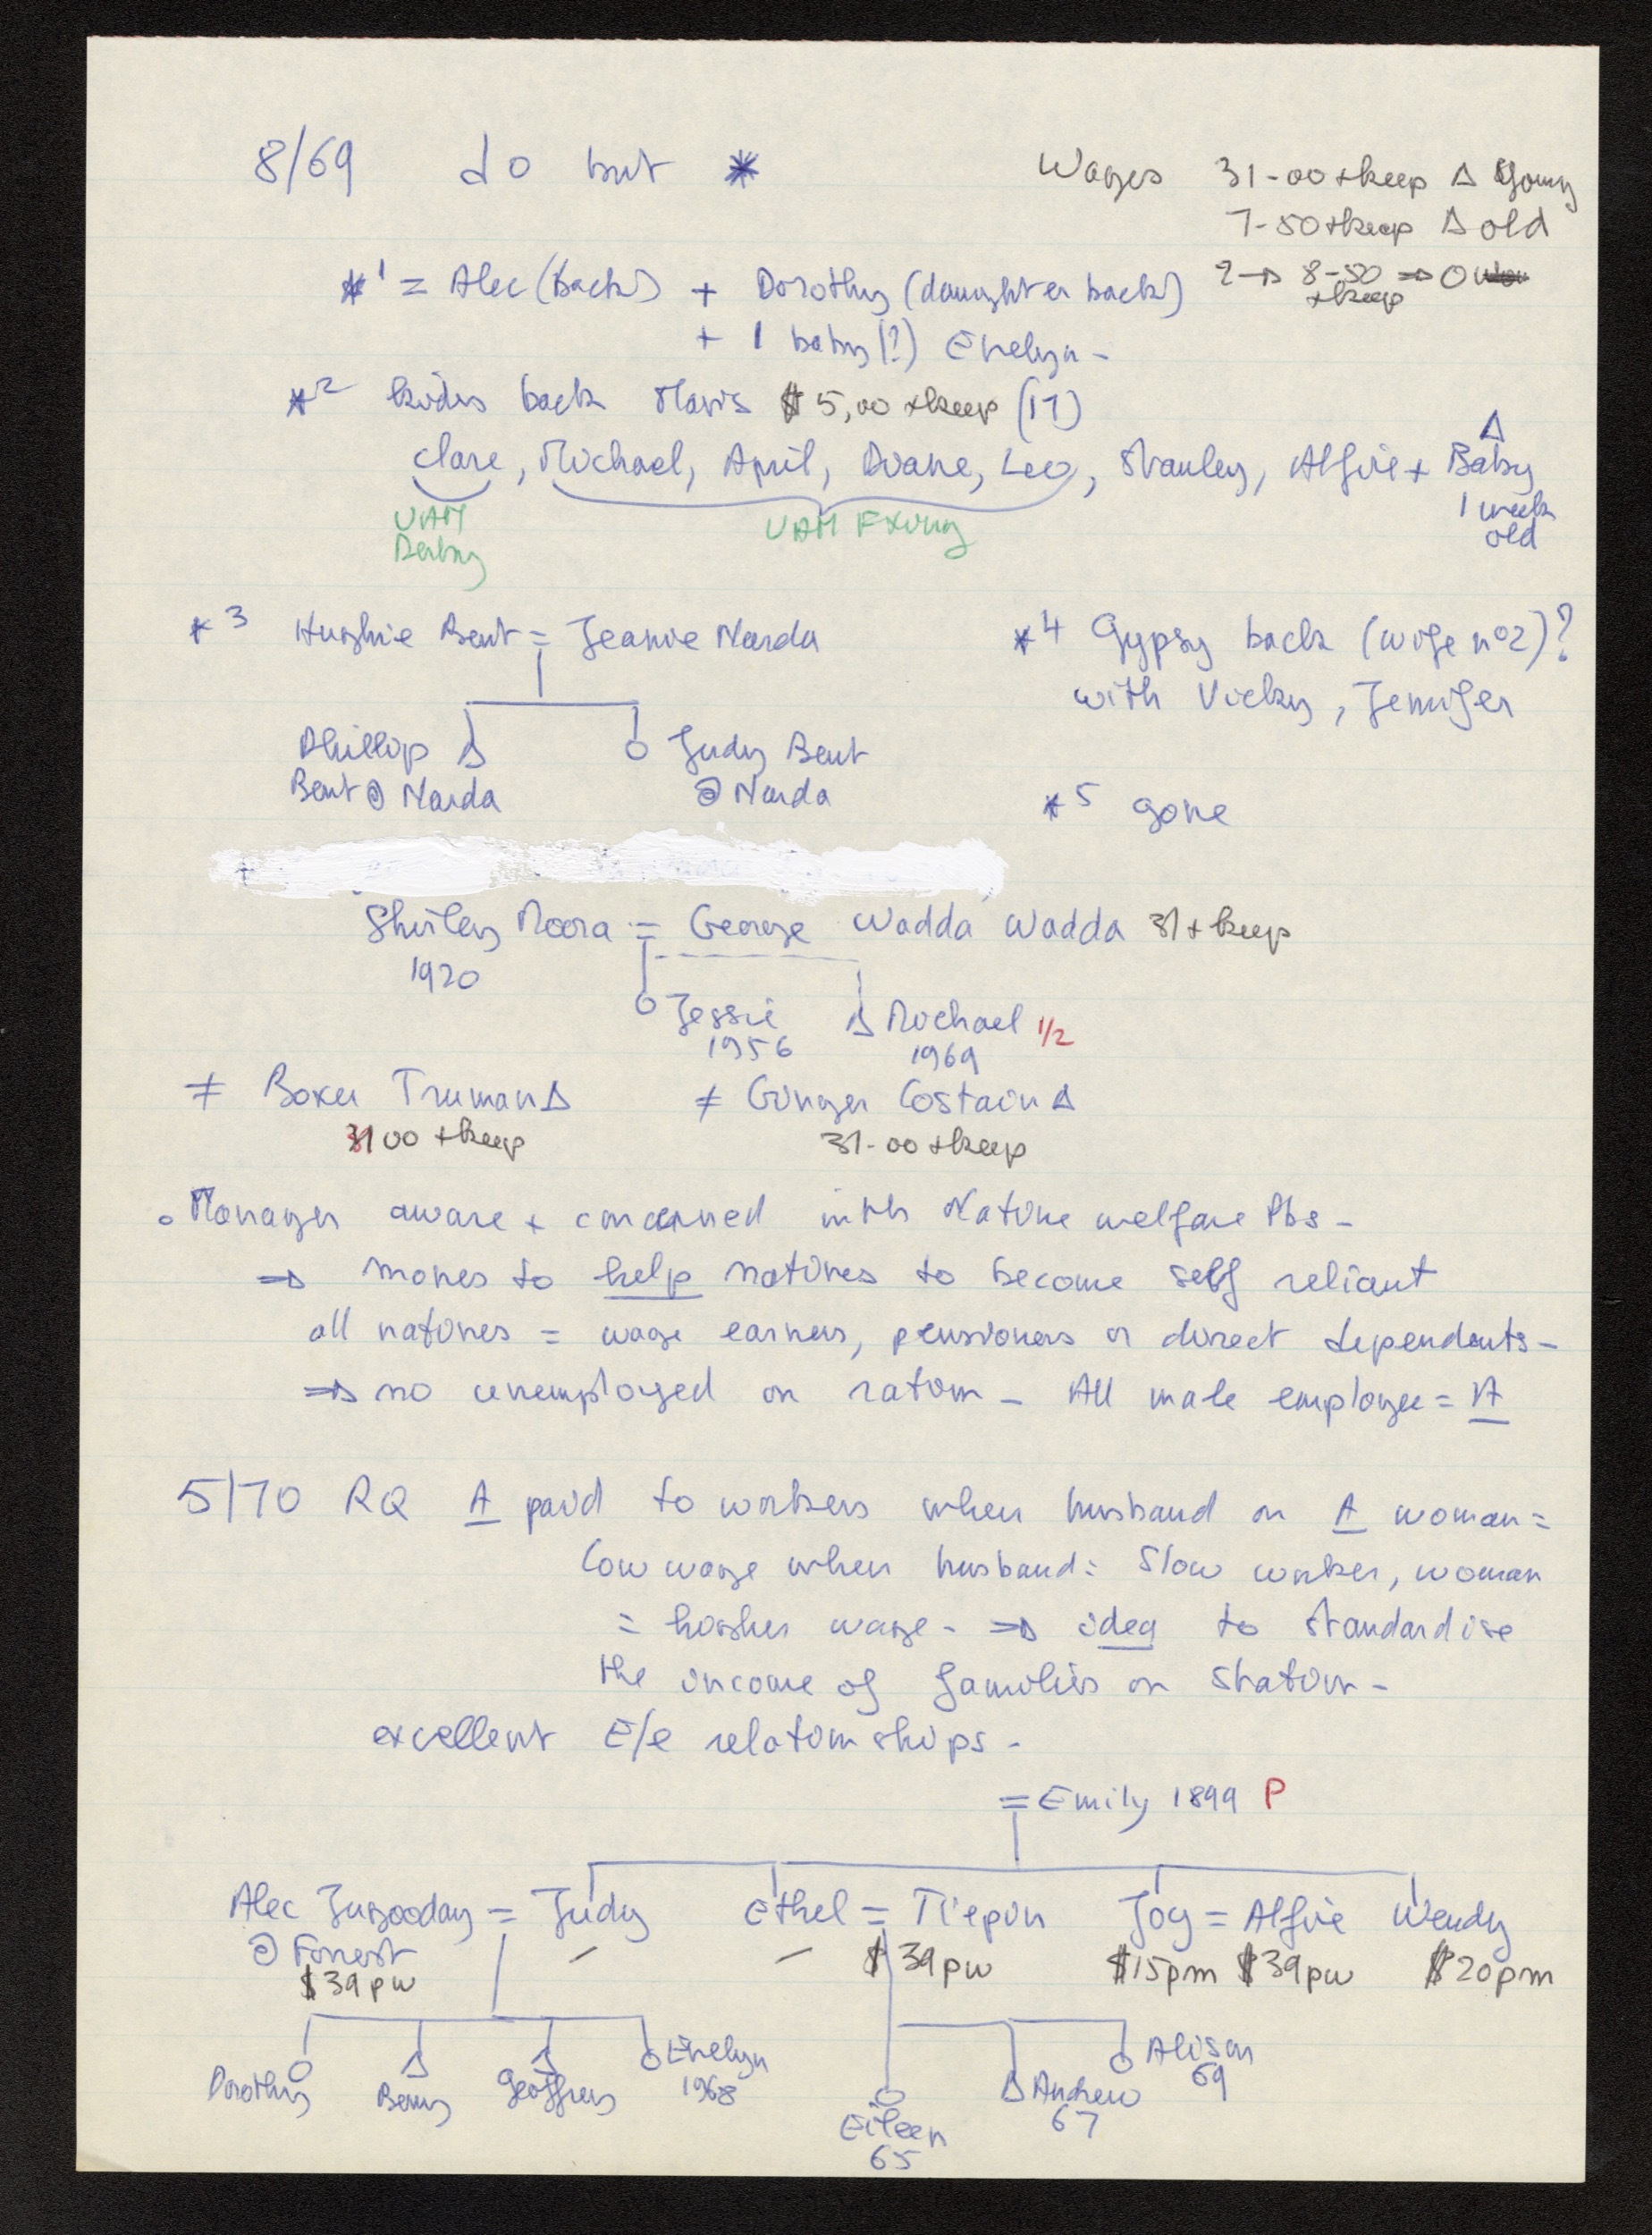 8/69 do but *
Wages 31-00 + keep Δ Young
7-50 + keep Δ old
2 → 8-50 ⇒ O
+ keep
*1 = Alec (back) + Dorothy (daughter back)
+ 1 baby (?) Evelyn -
*2 kids back Mavis $5,00 + keep (17)
Clare, Michael, April, Duane, Leo, Stanley, Alfie + Baby Δ
1 week
old
UAM
Derby
UAM FXing
*3 Hughie Bent = Jeanie Narda
*4 Gypsy back (wife n°2)?
with Vicky, Jennifer
Phillip Δ O Judy Bent
Bent @ Narda @ Narda
*5 gone
Shirley Moora = George Wadda Wadda 31 + keep
1920
O Jessie Δ Michael 1/2
1956 1969
≠ Boxer Truman Δ ≠ Ginger Costain Δ
31 00 + keep 31-00 + keep
. Manager aware + concerned with Native welfare Pbs -
⇒ moves to help natives to become self reliant
all natives = wage earners, pensioners or direct dependents -
⇒ no unemployed on ration - All male employee = A
5/70 RQ A paid to workers when husband on A woman =
low wage when husband = slow worker, woman
= higher wage - ⇒ idea to standardise
the income of families on station -
excellent E/e relationships -
= Emily 1899 P
Alec Jugooday = Judy Ethel = Tiepin Joy = Alfie Wendy
@ Forrest - - $39 pw $15pm $39pw $20pm
$39 pw
Dorothy O Benny Δ Geoffrey Δ O Evelyn
1968
O Alison
69
Δ Andrew
67
O Eileen
65